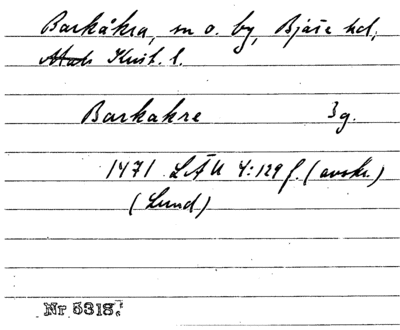 Barkåkra, sn o. by, Bjäre hd,
Krist. l.
Barkakre 3 g.
1471 LÄU 4:129 f. (avskr.)
(Lund)
Nr 5318.